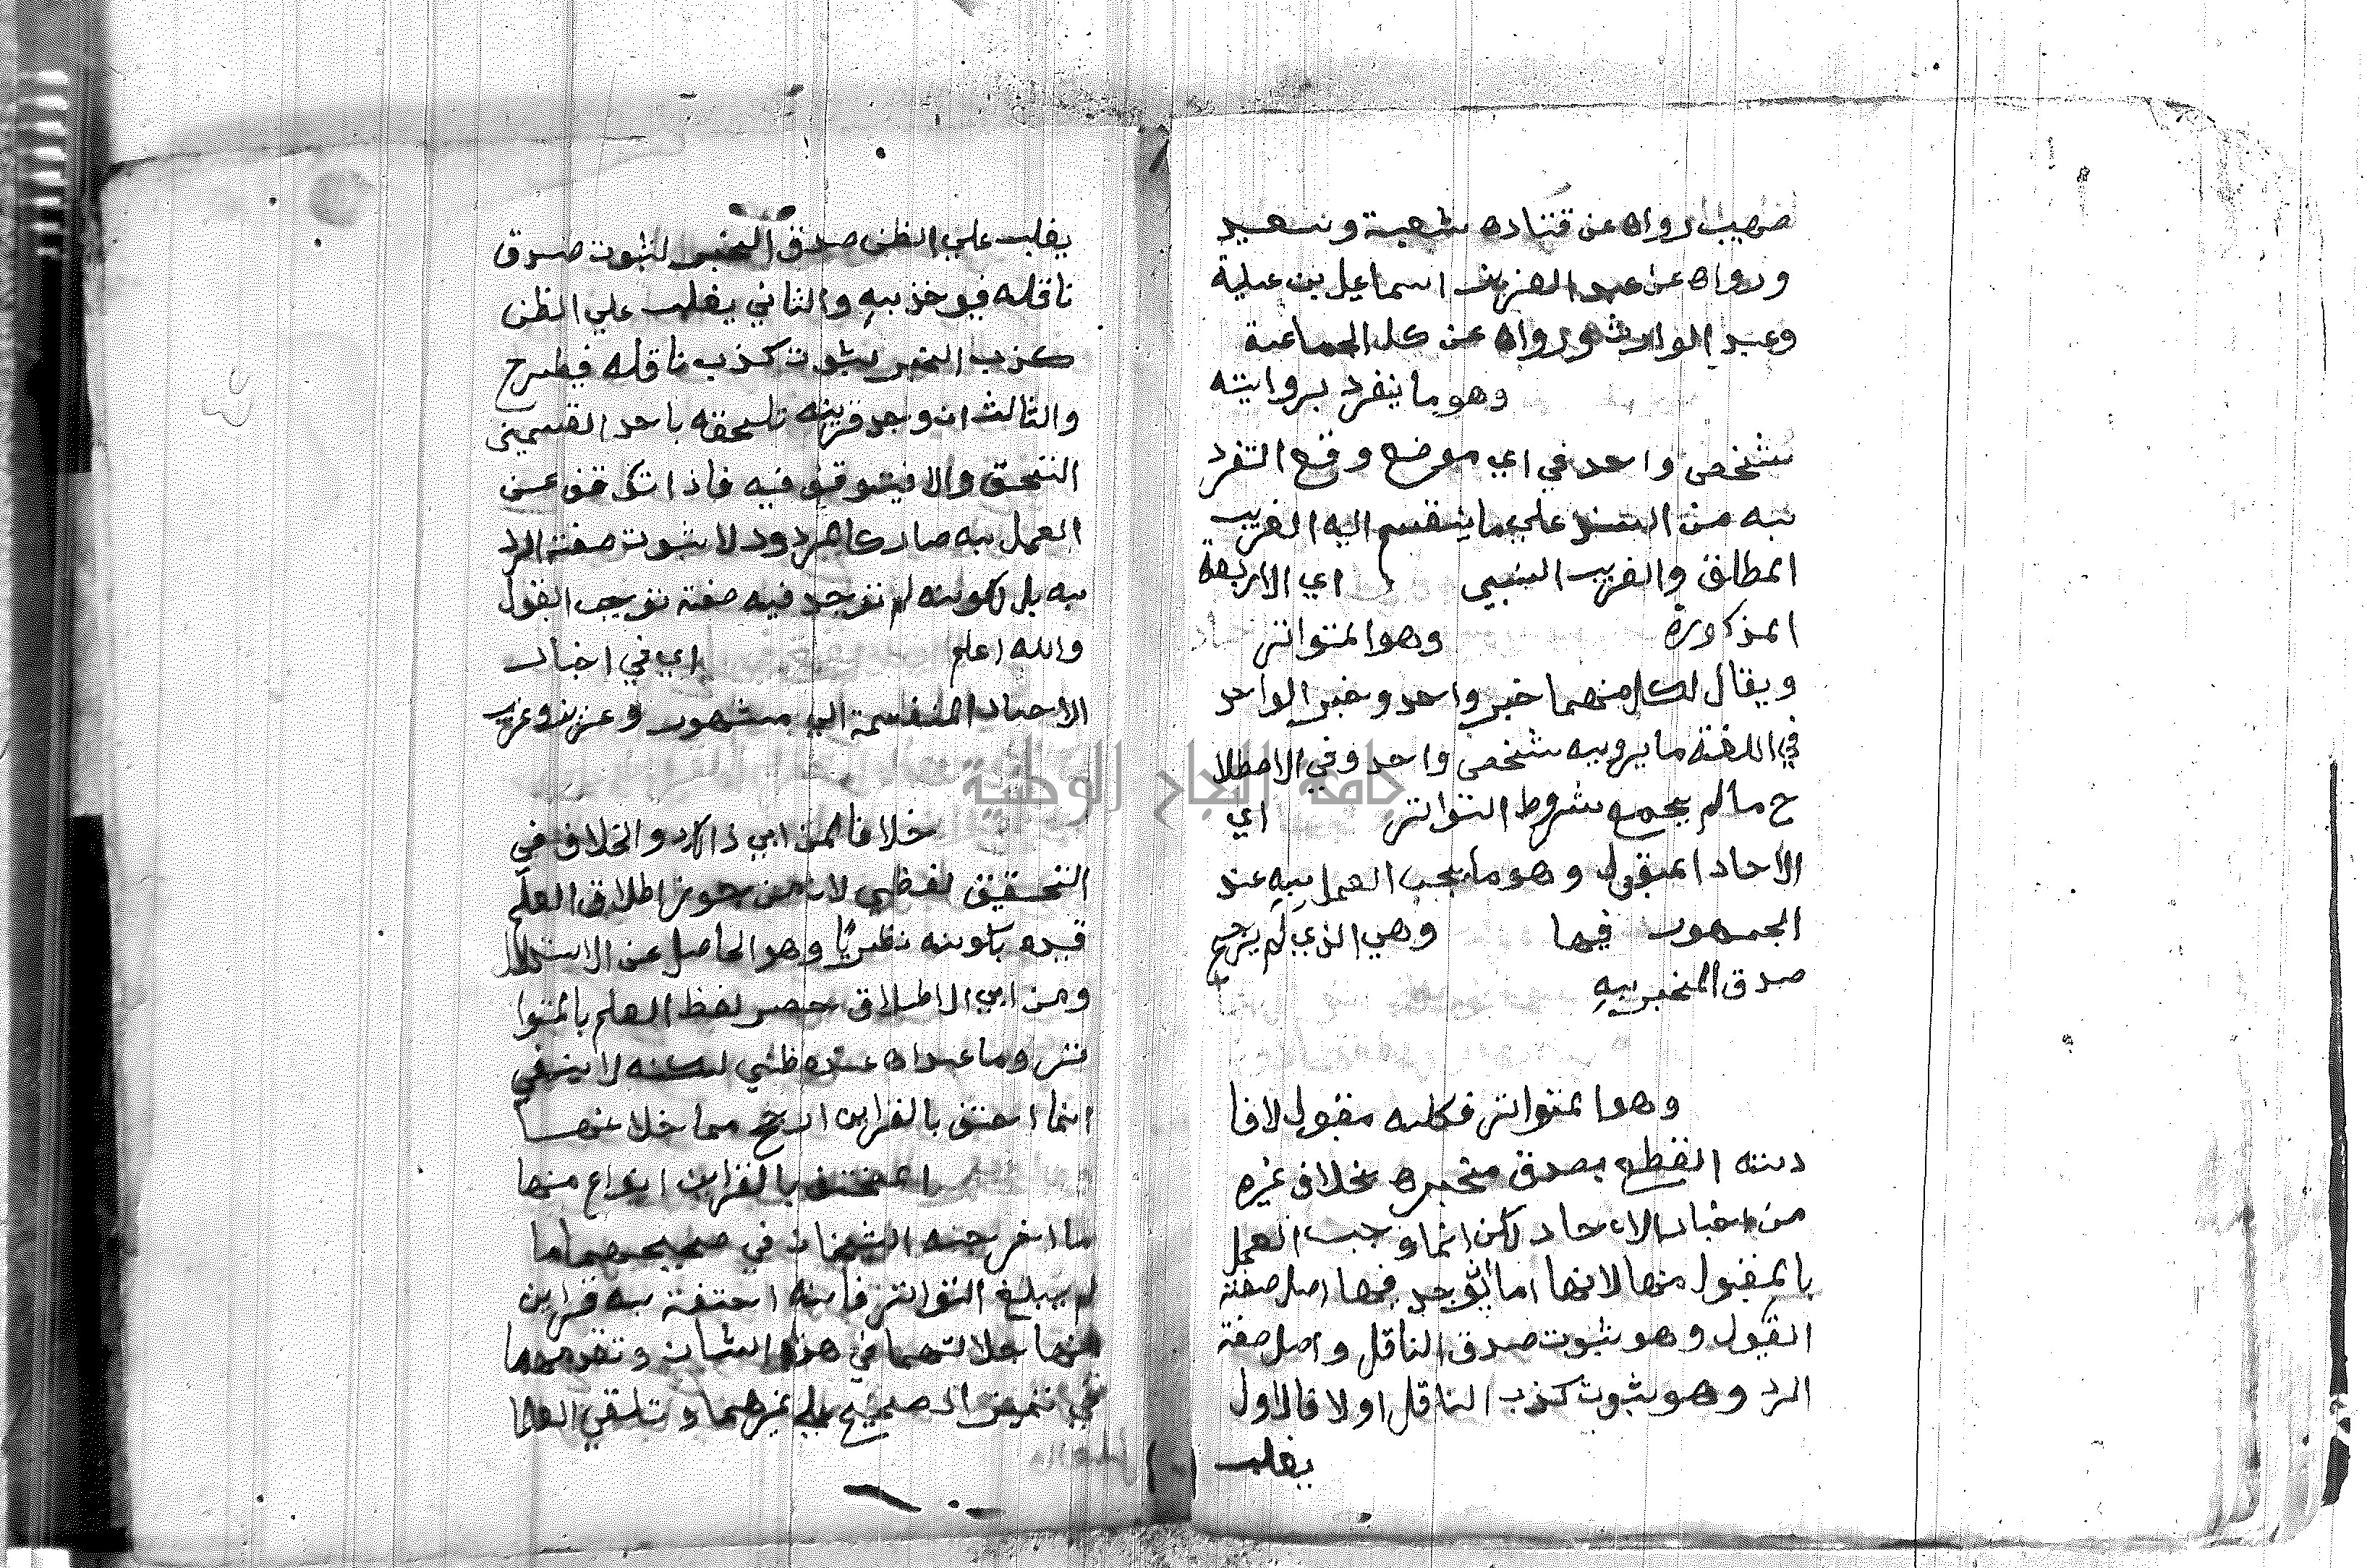 صهيب ورواه عن قتاده شعبة وسعيد
ورواه عن عبد العزيز اسماعيل بن علية
وعبد الوارث ورواه عن كل الجماعة
وهو ما ينفرد بروايته
شخص واحد في اي موضع وقع التفرد
به من السند علي ما ينقسم اليه الغريب
المطلق والغريب النسبي اي الاربعة
المذكورة وهو المتواتر
ويقال لكل منهما خبر واحد وخبر الواحد
في اللغة ما يرويه شخص واحد وفي الاصطلا
ح ما لم يجمع شروط التواتر اي
الاحاد المقبول وهو ما يجب العمل به عند
الجمهور فيها وهي الذي لم يرجح
صدق المخبر به
وهو المتواتر فكله مقبول لافا
دته القطع بصدق مخبره بخلاف غيره
من اخبار الاحاد لكن انما وجب العمل
بالمقبول منها لانها اما ان يوجد فيها اصل صفة
القبول وهو ثبوت صدق الناقل واصل صفة
الرد وهو ثبوت كذب الناقل اولا فالاول
يغلب
يغلب علي الظن صدق الخبر لثبوت صدق
ناقله فيوخذ به والثاني يغلب علي الظن
كذب الخبر لثبوت كذب ناقله فيطرح
والثالث ان وجد قرينه تلحقه باحد القسمين
التحق والا فيتوقف فيه فاذا توقف عن
العمل به صار كالمردود لا لثبوت صفة الرد
به بل لكونه لم توجد فيه صفة توجب القبول
والله اعلم اي في اخبار
الاحاد المنقسمة الي مشهور وعزيز وغريب
خلافا لمن ابي ذالك والخلاف في
التحقيق لفظي لان من جوز اطلاق العلم
قيده بكونه نظريا وهو الحاصل عن الاستدلال
ومن ابي الاطلاق حصر لفظ العلم بالمتوا
تر وما عداه عنده ظني لكنه لا ينفي
انما احتف بالقراين ارجح مما خلا عنها
المحتف بالقراين انواع منها
ما اخرجه الشيخان في صحيحيهما ما
لم يبلغ التواتر فانه احتفت به قراين
منها جلالتهما في هذا الشان وتقدمهما
في تمييز الصحيح علي غيرهما وتلقي العلما
جامعة النجاح الوطنية